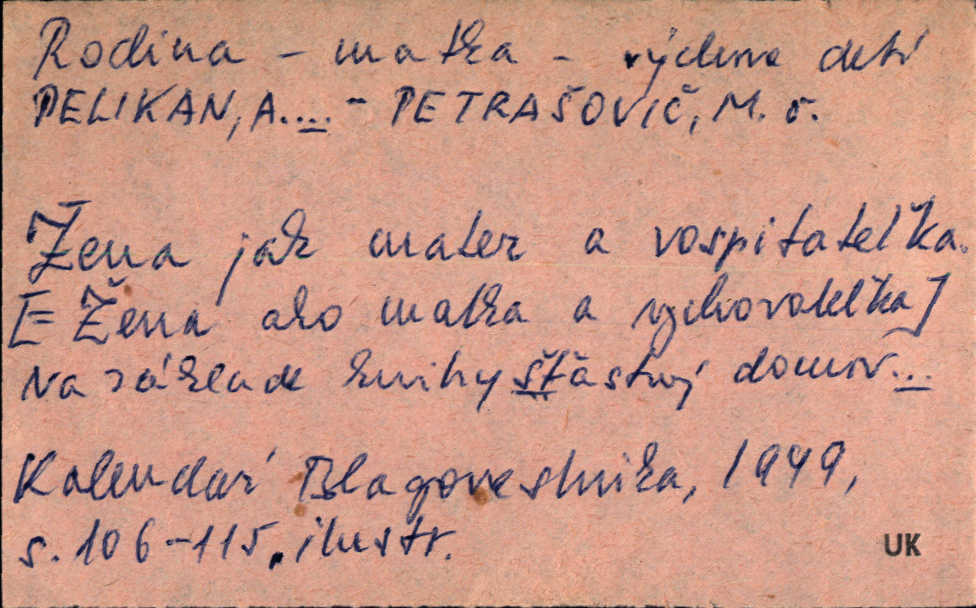 Rodina - matka - výchova detí
PELIKAN, A.... - PETRAŠOVIČ, M. o.
Žena jak mater a vospitatel'ka.
[= Žena ako matka a vychovatel'ka]
Na základe knihy šťastný domov...
Kalendar' Blagovestnika, 1949,
s. 106-115, ilustr.
UK